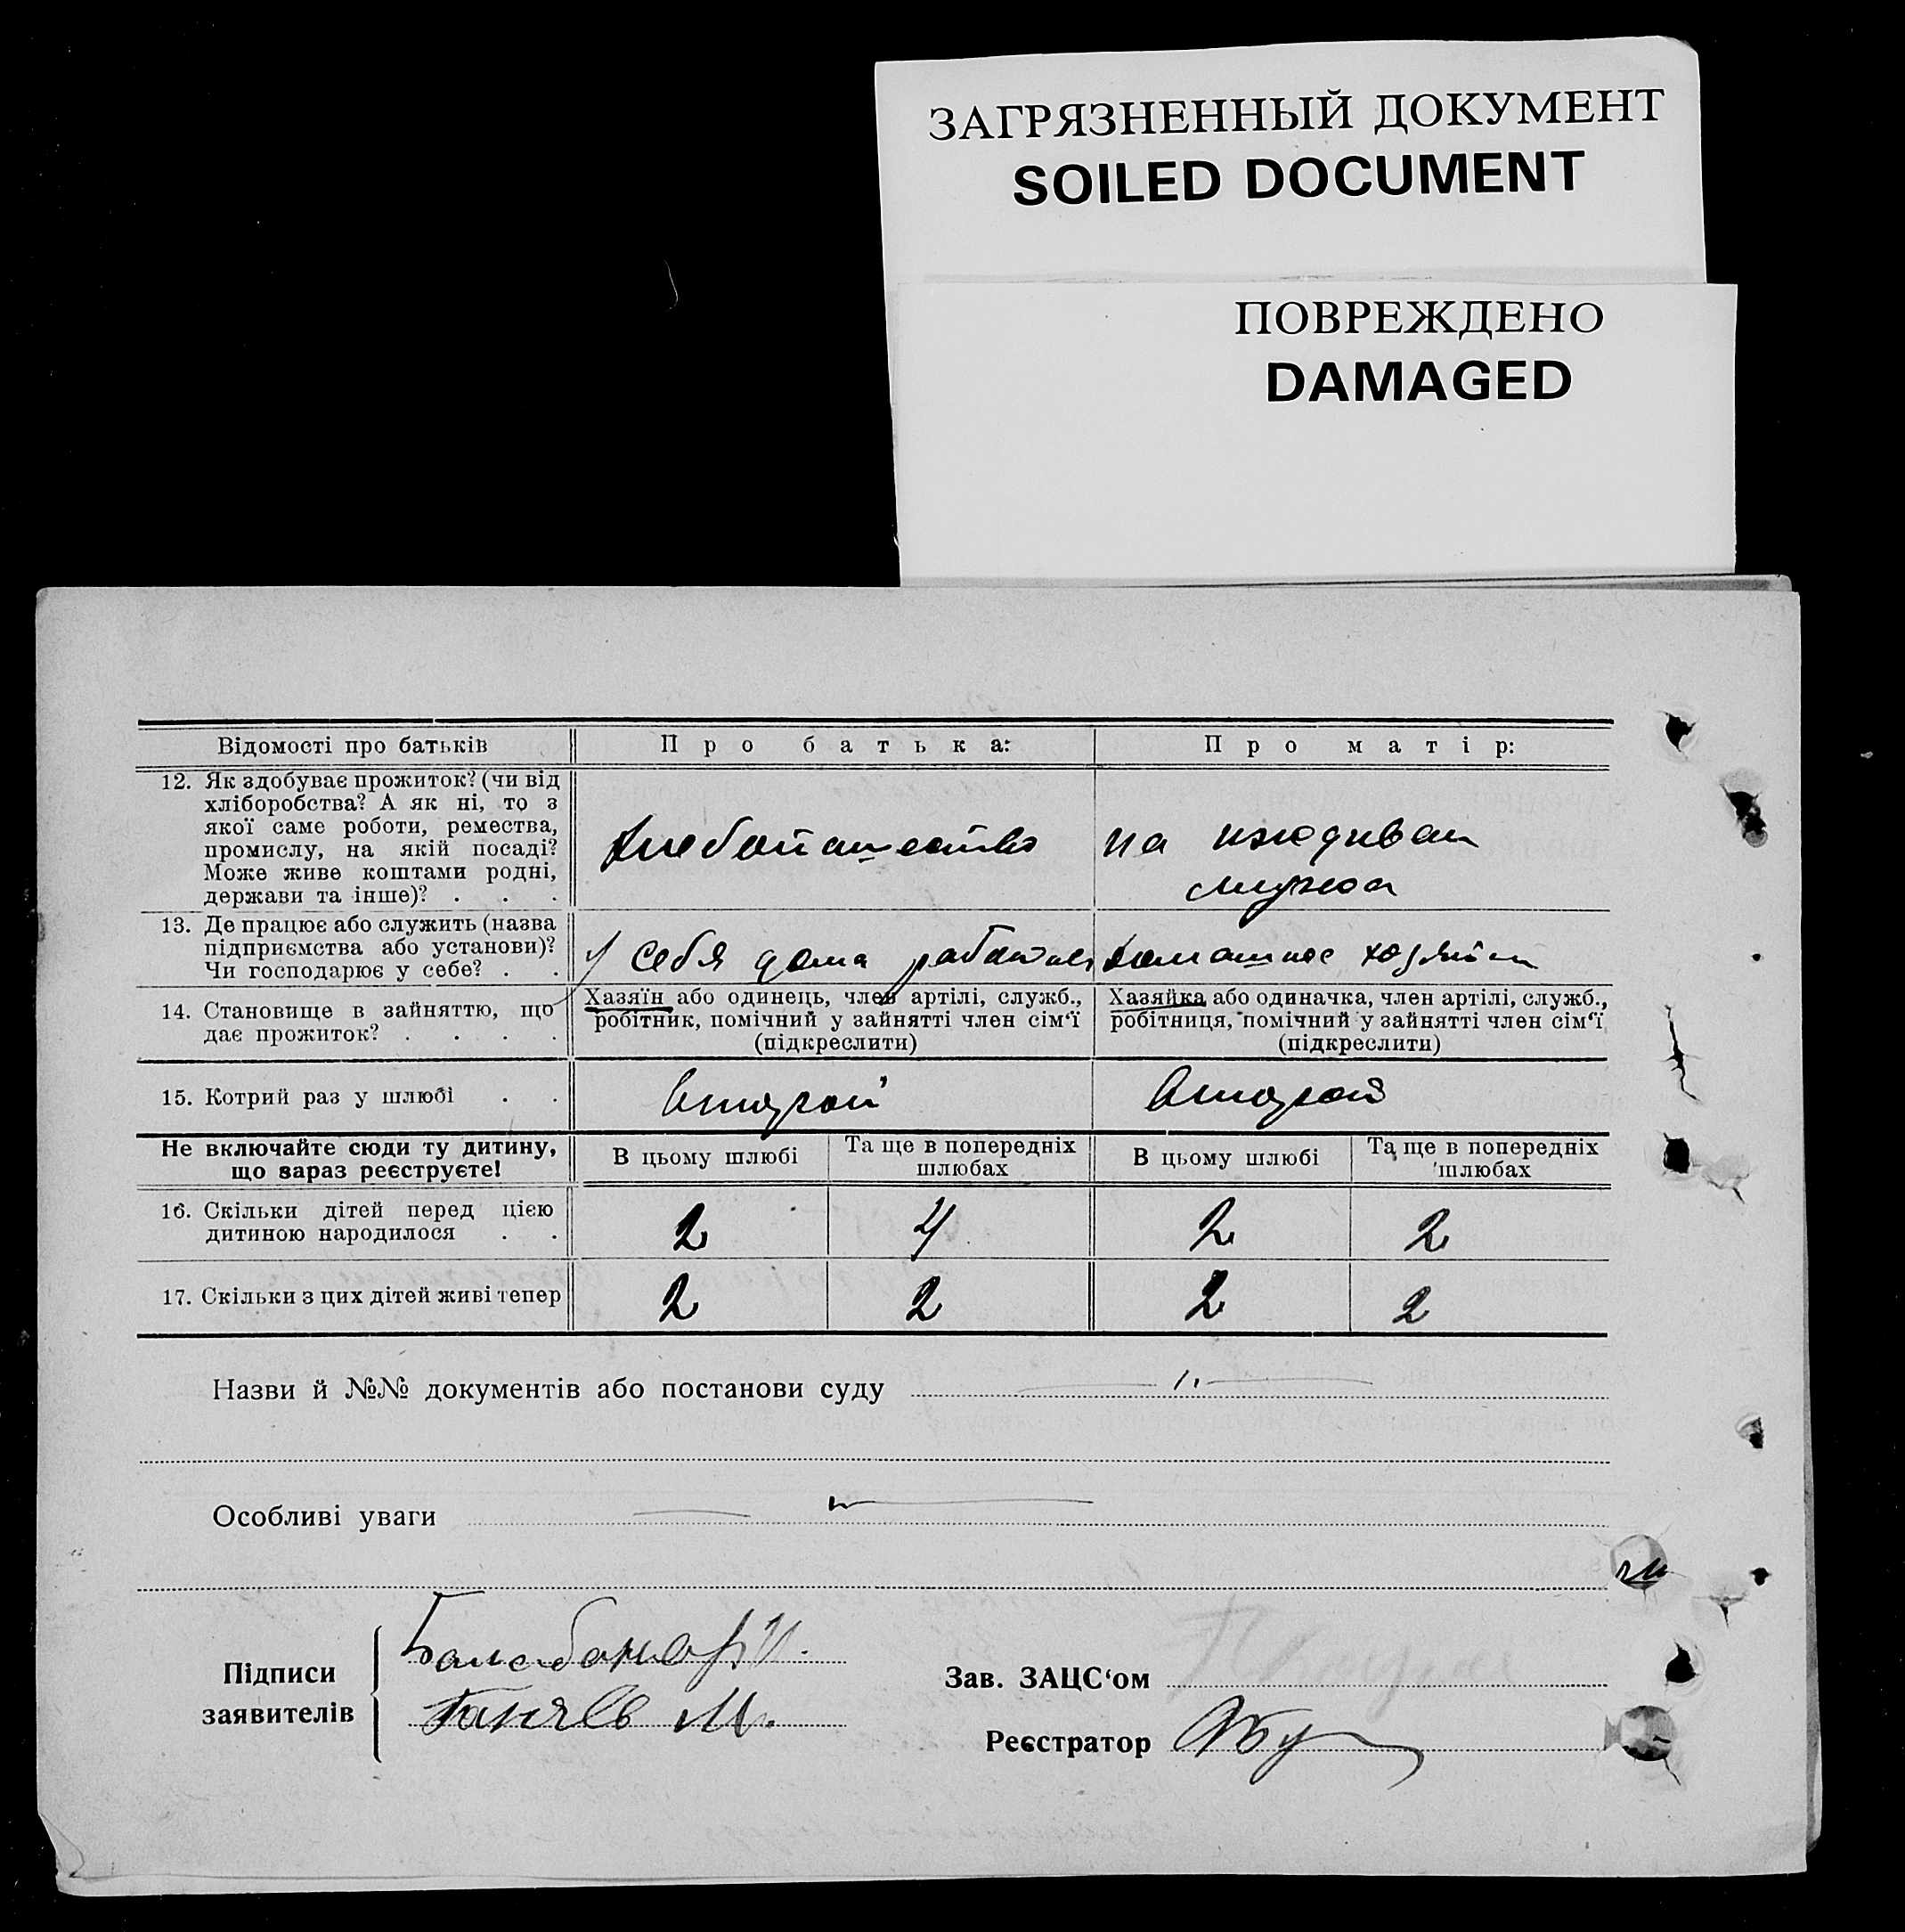 ЗАГРЯЗНЕННЫЙ ДОКУМЕНТ
SOILED DOCUMENT
ПОВРЕЖДЕНО
DAMAGED
Відомості про батьків
Про батька:
Про матір:
12. Як здобуває прожиток? (чи від
хліборобства? А як ні, то з
якої саме роботи, ремества,
промислу, на якій посаді?
Може живе коштами родні,
держави та інше)? . . .
хлебопашество
на иждивен
мужа
13. Де працює або служить (назва
підприємства або установи)?
Чи господарює у себе? . .
У себя дома
домашнее
14. Становище в зайняттю, що
дає прожиток? . . . .
Хазяїн або одинець, член артілі, служб.,
робітник, помічний у зайнятті член сім‘ї
(підкреслити)
Хазяйка або одиначка, член артілі, служб.,
робітниця, помічний у зайнятті член сім‘ї
(підкреслити)
15. Котрий раз у шлюбі . .
второй
второй
Не включайте сюди ту дитину,
що зараз реєструєте!
В цьому шлюбі
Та ще в попередніх
шлюбах
В цьому шлюбі
Та ще в попередніх
шлюбах
16. Скільки дітей перед цією
дитиною народилося . .
2
4
2
2
17. Скільки з цих дітей живі тепер
2
2
2
2
Назви й №№ документів або постанови суду
Особливі уваги
Підписи
заявителів
Зав. ЗАЦС‘ом
Реєстратор